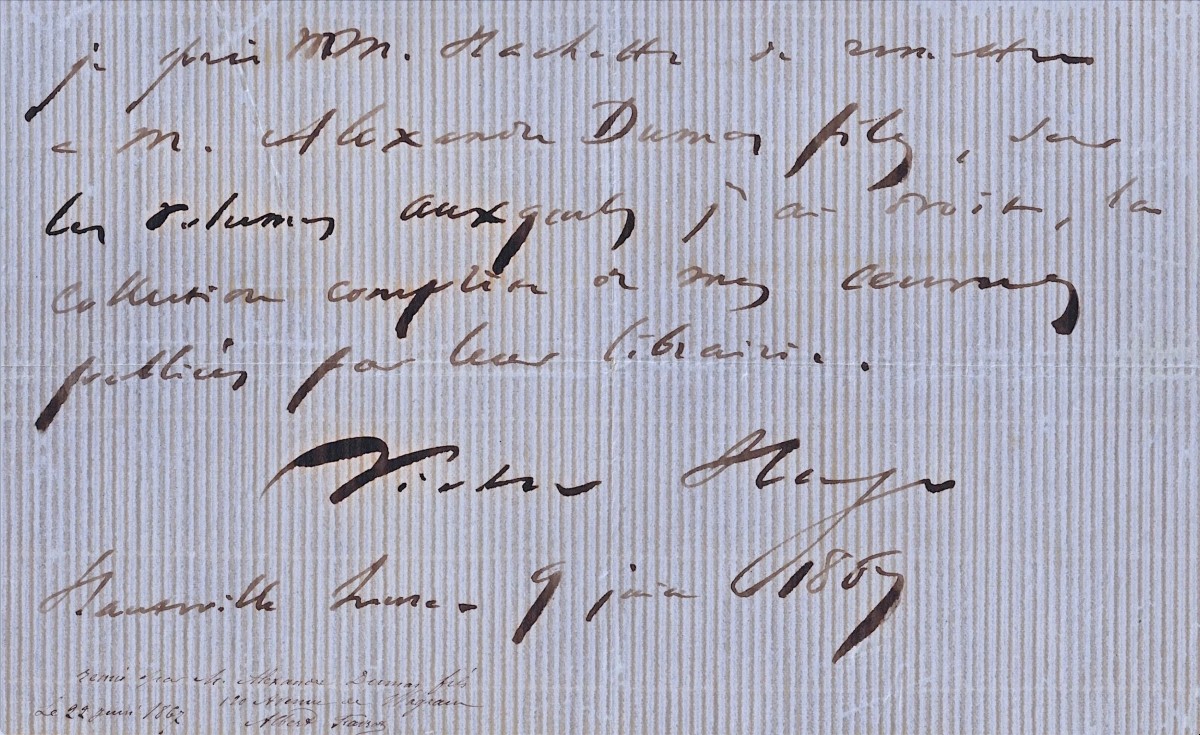 je prie MM. Hachette de remettre
à M. Alexandre Dumas fils, sur
les volumes auxquels j'ai droit, la
collection complète de mes œuvres
publiées par leur librairie.
Victor Hugo
Hauteville house - 9 juin 1867
remis par M. Alexandre Dumas fils
Le 22 juin 1867 120 Avenue de Wagram
Albert